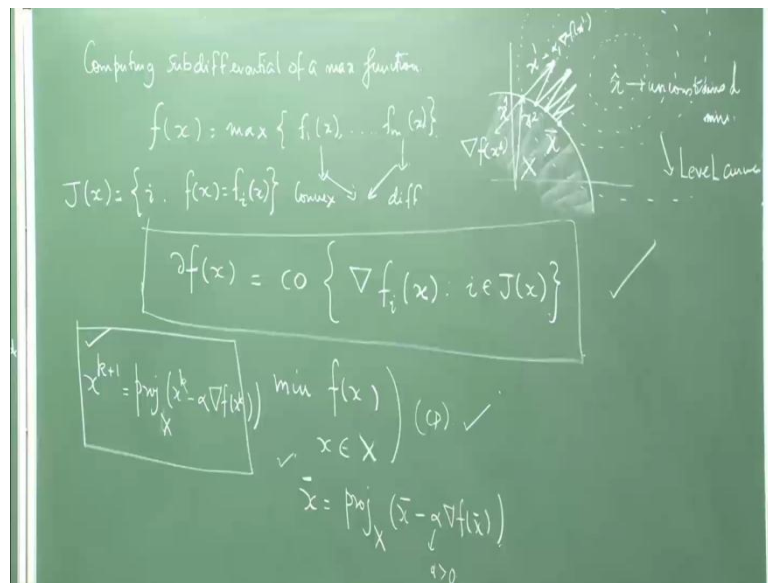 Computing subdifferential of a max function
f(x) = max { f₁(x), .... fₘ(x) }
J(x) = { i : f(x) = fᵢ(x) } Convex diff
∂f(x) = co { ∇fᵢ(x) : i ∈ J(x) }
x^{k+1} = proj_X (x^k - α∇f(x^k))
min f(x)
x ∈ X
(CP)
x̄ = proj_X (x̄ - α∇f(x̄))
α>0
x¹ - α∇f(x¹)
x¹
x²
x̄
X
∇f(x¹)
x̂ → unconstrained
min
Level curves